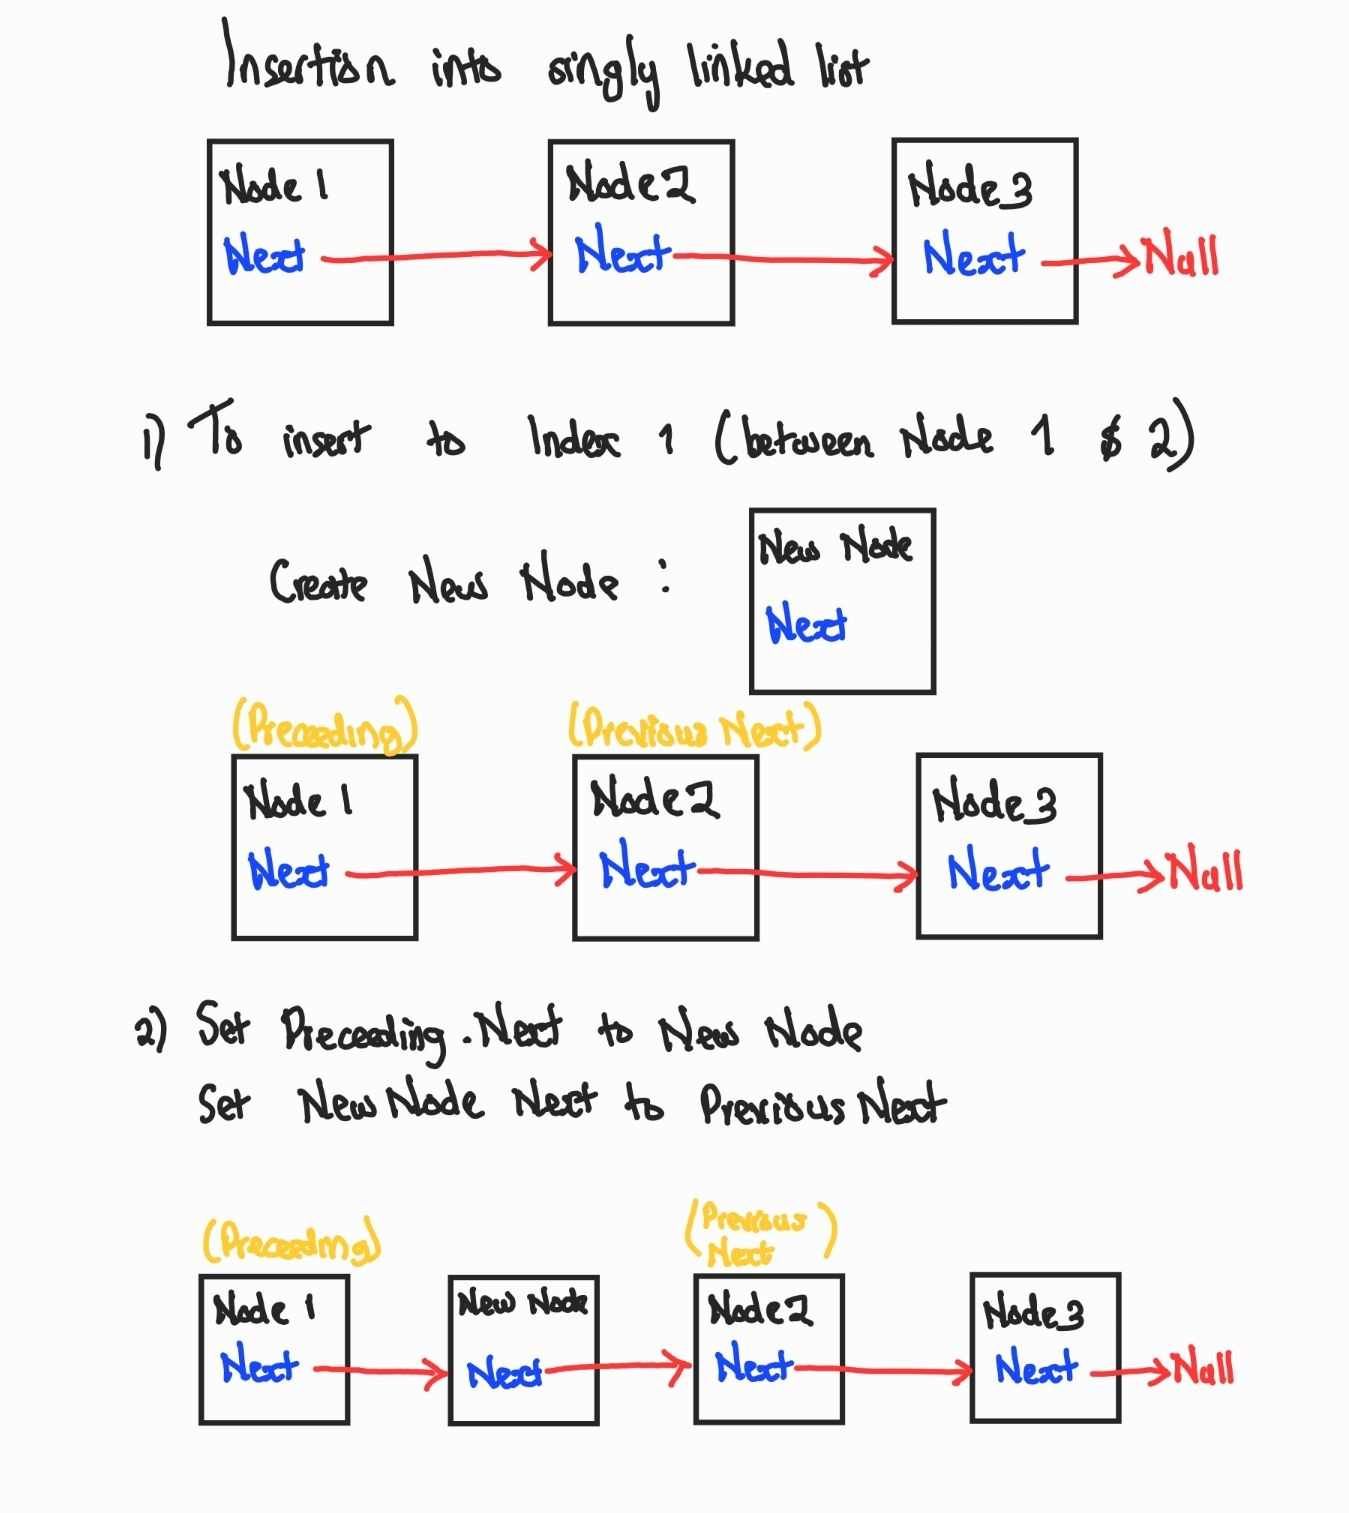 Insertion into singly linked list
Node 1
Next
Node 2
Next
Node 3
Next
Null
1) To insert to Index 1 (between Node 1 & 2)
Create New Node :
New Node
Next
(Preceeding)
(Previous Next)
Node 1
Next
Node 2
Next
Node 3
Next
Null
2) Set Preceeding.Next to New Node
Set New Node Next to Previous Next
(Preceeding)
(Previous
Next)
Node 1
Next
New Node
Next
Node 2
Next
Node 3
Next
Null